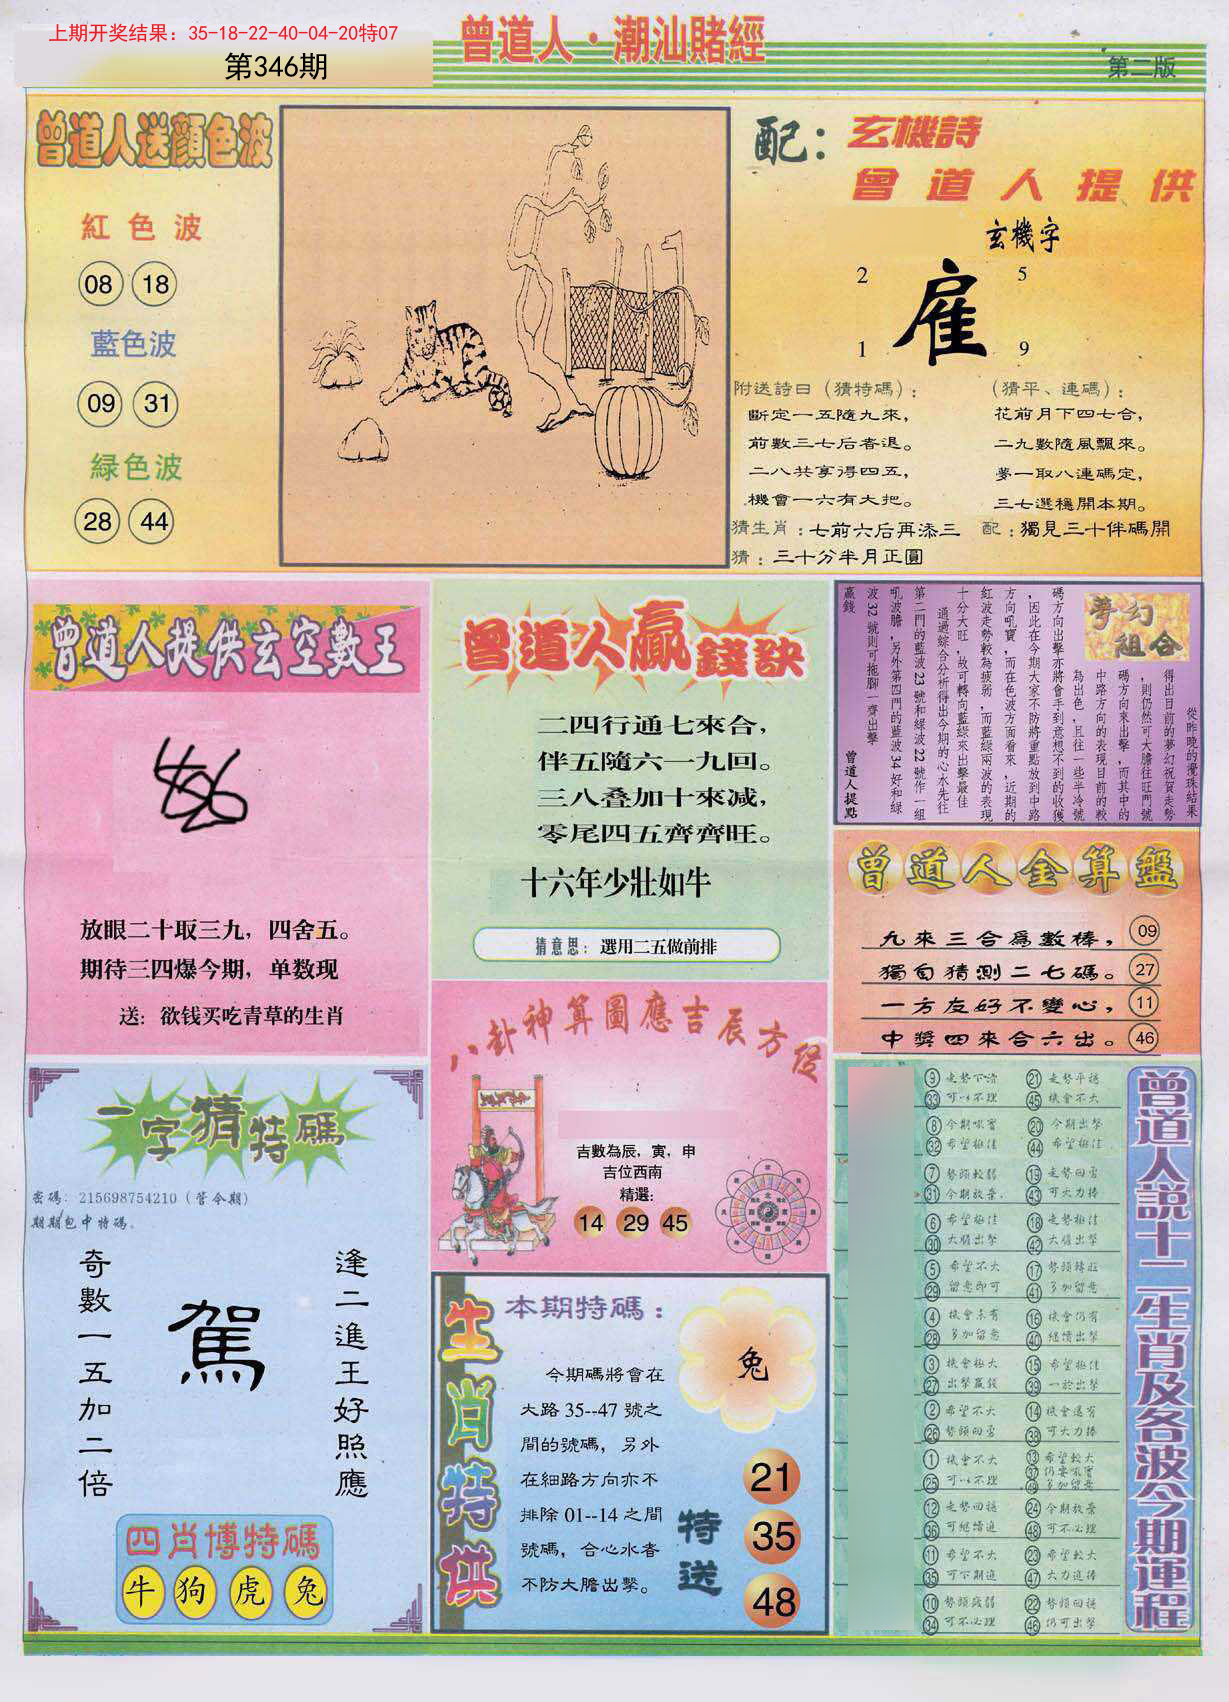 上期开奖结果：35-18-22-40-04-20特07
第346期
曾道人·潮汕賭經
第二版
曾道人送顔色波
紅色波
08 18
藍色波
09 31
緑色波
28 44
配：玄機詩
曾道人提供
玄機字
2 5
雇
1 9
附送詩曰（猜特碼）：
斷定一五隨九來，
前數三七后者退。
二八共享得四五，
機會一六有大把。
（猜平、連碼）：
花前月下四七合，
二九數隨風飄來。
夢一取八連碼定，
三七選穩開本期。
猜生肖：七前六后再添三
配：獨見三十伴碼開
猜：三十分半月正圓
曾道人提供玄空數王
放眼二十取三九，四舍五。
期待三四爆今期，单数现
送：欲钱买吃青草的生肖
曾道人贏錢訣
二四行通七來合，
伴五隨六一九回。
三八叠加十來减，
零尾四五齊齊旺。
十六年少壯如牛
猜意思：選用二五做前排
夢幻組合
從昨晚的攪珠結果
得出目前的夢幻祝賀走勢
，則仍然可大膽往旺門號
碼方向來出擊，而其中的
中路方向的表現目前的較
為出色，且往一些半冷號
碼方向出擊亦將會手到意想不到的收獲
，因此在今期大家不防將重點放到中路
方向吼寶，而在色波方面看來，近期的
紅波走勢較為疲弱，而藍綠兩波的表現
十分大旺，故可轉向藍綠來出擊最佳
通過綜合分析得出今期的心水先往
第二門的藍波23號和綠波22號作一組
吼波膽，另外第四門的藍波34好和綠
波32號則可拖腳一齊出擊
贏錢
曾道人提點
曾道人金算盤
九來三合爲數棒， 09
獨自猜測二七碼。 27
一方友好不變心， 11
中獎四來合六出。 46
八卦神算圖應吉辰方位
吉數為辰，寅，申
吉位西南
精選：
14 29 45
一字猜特碼
密碼：215698754210（管今期）
期期包中特碼。
奇數一五加二倍
駕
逢二進王好照應
四肖博特碼
牛 狗 虎 兔
生肖特供
本期特碼：
兔
今期碼將會在
大路35--47號之
間的號碼，另外
在細路方向亦不
排除01--14之間
號碼，合心水者
不防大膽出擊。
特送
21
35
48
曾道人説十二生肖及各波今期運程
9 走勢下滑 21 走勢平穩
33 可以不理 45 機會不大
8 今期吼寶 20 今期出擊
32 希望極佳 44 希望極佳
7 勢頭較弱 19 走勢回勇
31 今期放棄. 43 可大力捧
6 希望極佳 18 走勢極佳
30 大膽出擊 42 大膽出擊
5 希望不大 17 勢頭轉旺
29 留意即可 41 多加留意
4 機會未有 16 機會仍有
28 多加留意 40 繼續出擊
3 機會極大 15 希望極佳
27 出擊贏錢 39 一於出擊
2 希望不大 14 機會還有
26 勢頭回勇 38 可大力捧
1 機會不大 13 希望較大
25 可以不理 37 仍要吼寶
49 多加留意
12 走勢回穩 24 今期放棄
36 可繼續追 48 可不必理
11 希望不大 23 希望較大
35 可下期追 47 大力追捧
10 勢頭疲弱 22 勢頭回穩
34 可不必理 46 仍可出擊